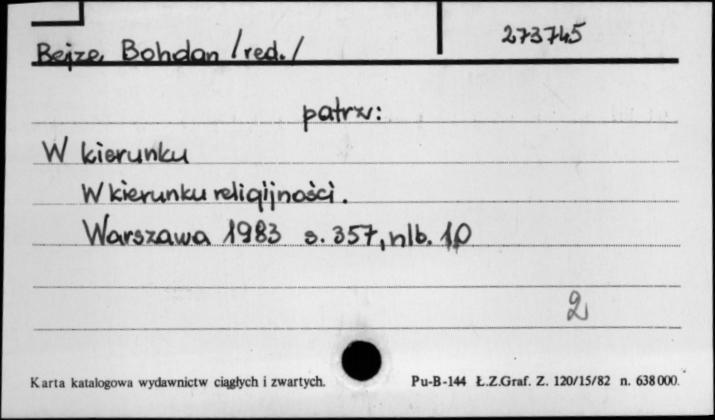 273745
Bejze, Bohdan /red./
patrz:
W kierunku
W kierunku religijności.
Warszawa 1983 s. 357, nlb. 10
2
Karta katalogowa wydawnictw ciągłych i zwartych. Pu-B-144 Ł.Z.Graf. Z. 120/15/82 n. 638000.